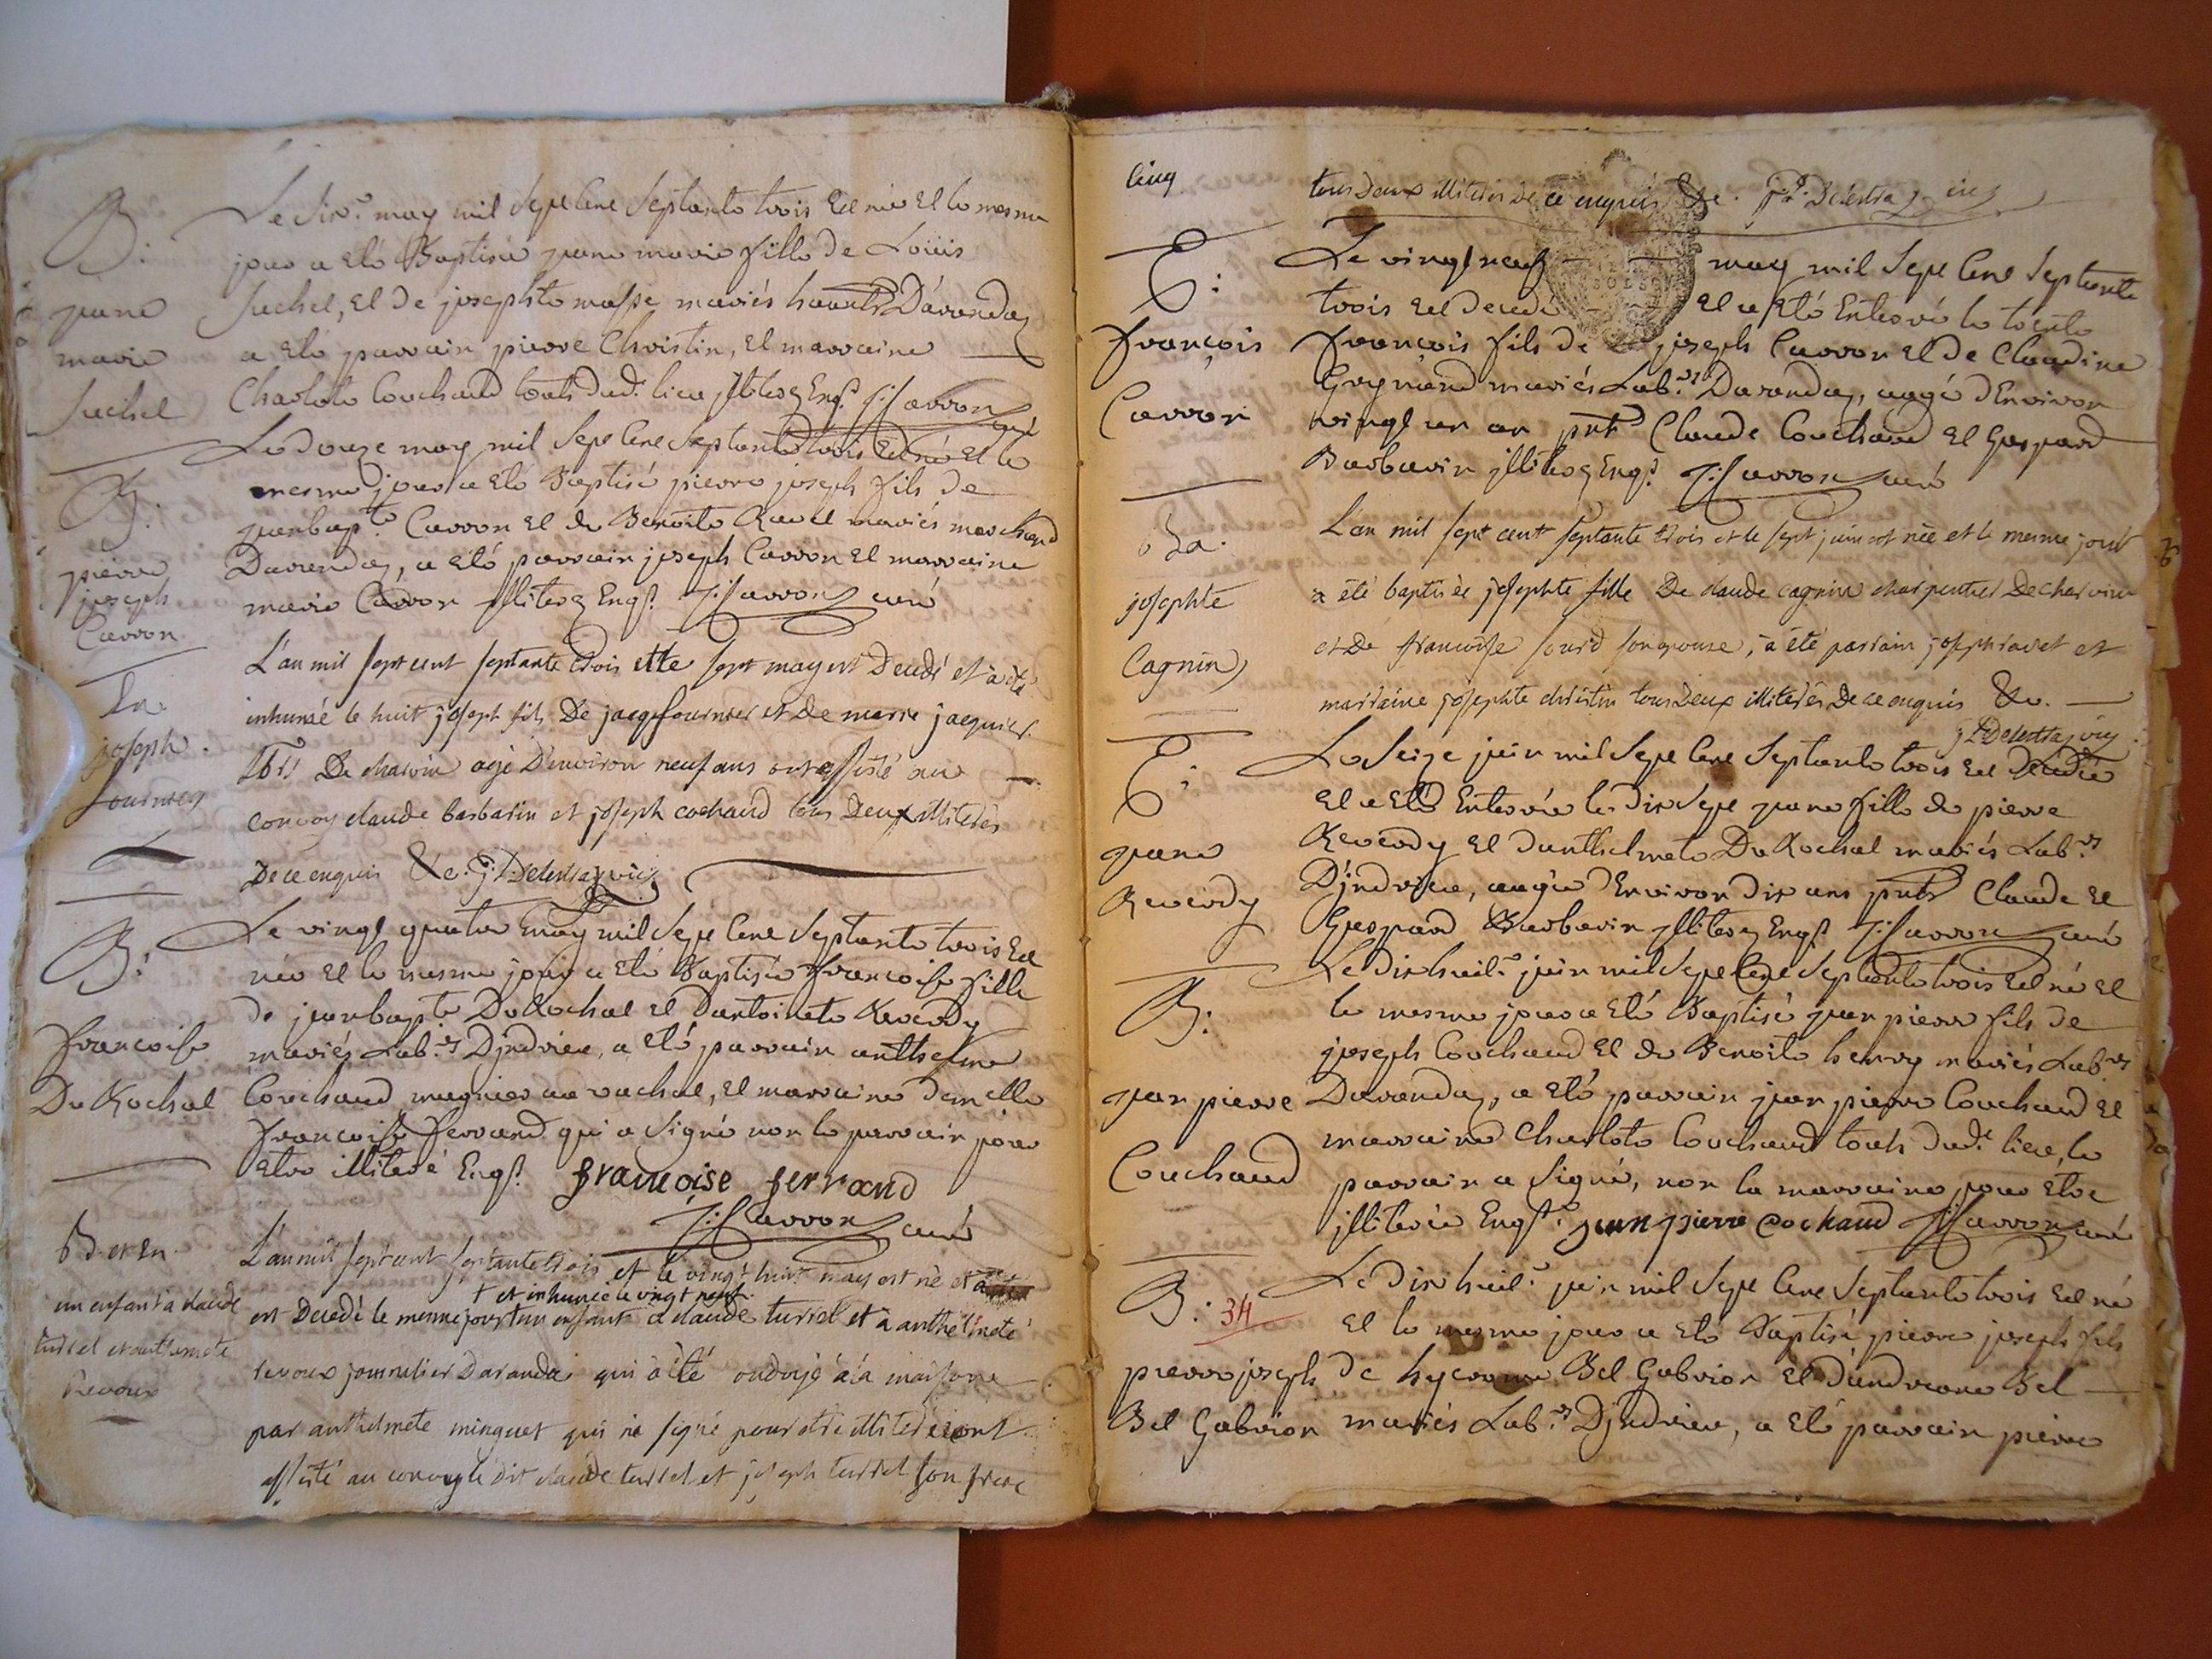 B:
jeane
marie
Juchel
Le six.e may mil Sept Cent Septante trois Est née Et le mesme
jour a Eté Baptisée jeane marie fille de Loüis
Juchel, Et de josephte masse mariés habits D'aranday
a Eté parrain pierre Christin, Et marraine
Charlote Couchaud touts dud.t lieu jlliterez Enq.s J: Carron curé
B:
pierre
joseph
Carron
Le douze may mil Sept Cent Septante trois Est né Et le
mesme jour a Eté Baptisé pierre joseph fils de
jeanbapt.te Carron Et de Benoite Ravel mariés marchand
Daranday, a Eté parrain joseph Carron Et marraine
marie Carron jlliterez Enq.s J: Carron curé
En
joseph
fournier
L'an mil sept cent septante trois et le sept may est Decedé et à été
inhumé le huit joseph fils De jacq fournier et De marie jacquier
De charvin agé D'environ neuf ans ont assisté au
convoy claude barbarin et joseph cochaud tous Deux illiterès
De ce enquis &c. j: P: Delestra vic
B:
francoise
Du Rochal
Le vingt quatre may mil Sept Cent Septante trois Est
née Et le mesme jour a Eté Baptisée francoise fille
de jeanbapt.te Du Rochal Et Dantoinete Reverdy
mariés Lab.rs Djndrieu, a Eté parrain anthelme
Couchaud magnier au rachal, Et marraine demelle
francoise ferrand qui a Signé non le parrain pour
Etre illiteré Enq.s françoise ferrand
J: Carron curé
B et En
un enfant à claude
turrel et anthelmete
Revoux
L'an mil sept cent septante trois et le vingt huit may est né et
+ et inhumé le vingt neuf
est Decedé le meme jour + un enfant à claude turrel et à anthelmete
revoux journalier Daranda qui à été ondoyé à la maison
par anthelmete minguet qui n'a signé pour etre illiterée ont
assisté au convoy le dit claude turrel et joseph turrel son frere
Cinq
tous deux illiterès de ce enquis &c. j: P: Delestra vic
E:
françois
Carron
Le vingt neuf may mil Sept Cent Septante
trois Est decedé Et a Eté Enterré le trente
françois fils de joseph Carron Et de Claudine
Groynand mariés Lab.rs Daranday, aagé d'Environ
vingt un an pnts Claude Couchaud Et Gaspard
Barbarin jlliterez Enq.s J: Carron curé
Ba.
josephte
Cagnin
L'an mil sept cent septante trois et le sept juin est née et le meme jour
a été baptisée josephte fille De claude cagnin charpentier De charvin
et De francoise sourd son epouse, à été parrain joseph ravet et
marraine josephte christin tous Deux illiterès De ce enquis &c.
j: P: Delestra vic
E:
jeane
Reverdy
Le Seize juin mil Sept Cent Septante trois Est decedée
Et a Eté Enterrée le dix Sept jeane fille de pierre
Reverdy Et danthelmete Du Rochal mariés Lab.rs
Djndrieu, aagée d'Environ dix ans pnts Claude Et
Gaspard Barbarin jlliterez Enq.s J: Carron curé
B:
jean pierre
Couchaud
Le dix huit.e juin mil Sept Cent Septante trois Est né Et
le mesme jour a Eté Baptisé jean pierre fils de
joseph Couchaud Et de Benoite henry mariés Lab.rs
Daranday, a Eté parrain jean pierre Couchaud Et
marraine Charlote Couchaud touts dud.t lieu, le
parrain a Signé, non la marraine pour Etre
jlliterée Enq.s jean pierre Cochaud J: Carron curé
B: 34
pierre joseph
Bel Gabrion
Le dix huit.e juin mil Sept Cent Septante trois Est né
Et le mesme jour a Eté Baptisé pierre joseph fils
de hyerome Bel Gabrion Et d'andreane Bel
mariés Lab.rs Djndrieu, a Eté parrain pierre